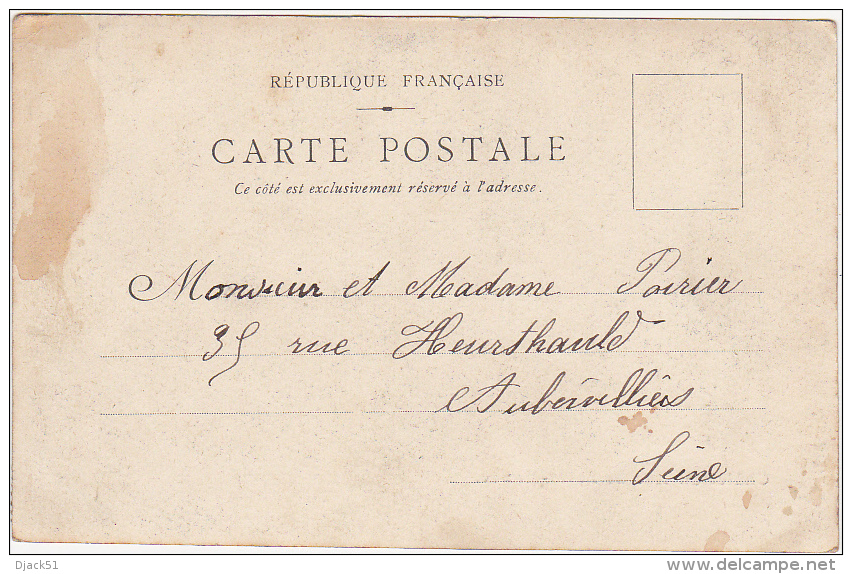 RÉPUBLIQUE FRANÇAISE
CARTE POSTALE
Ce côté est exclusivement réservé à l'adresse.
Monsieur et Madame Poirier
35 rue Heurthauld
Aubervilliers
Seine
Djack51
delcampe.net